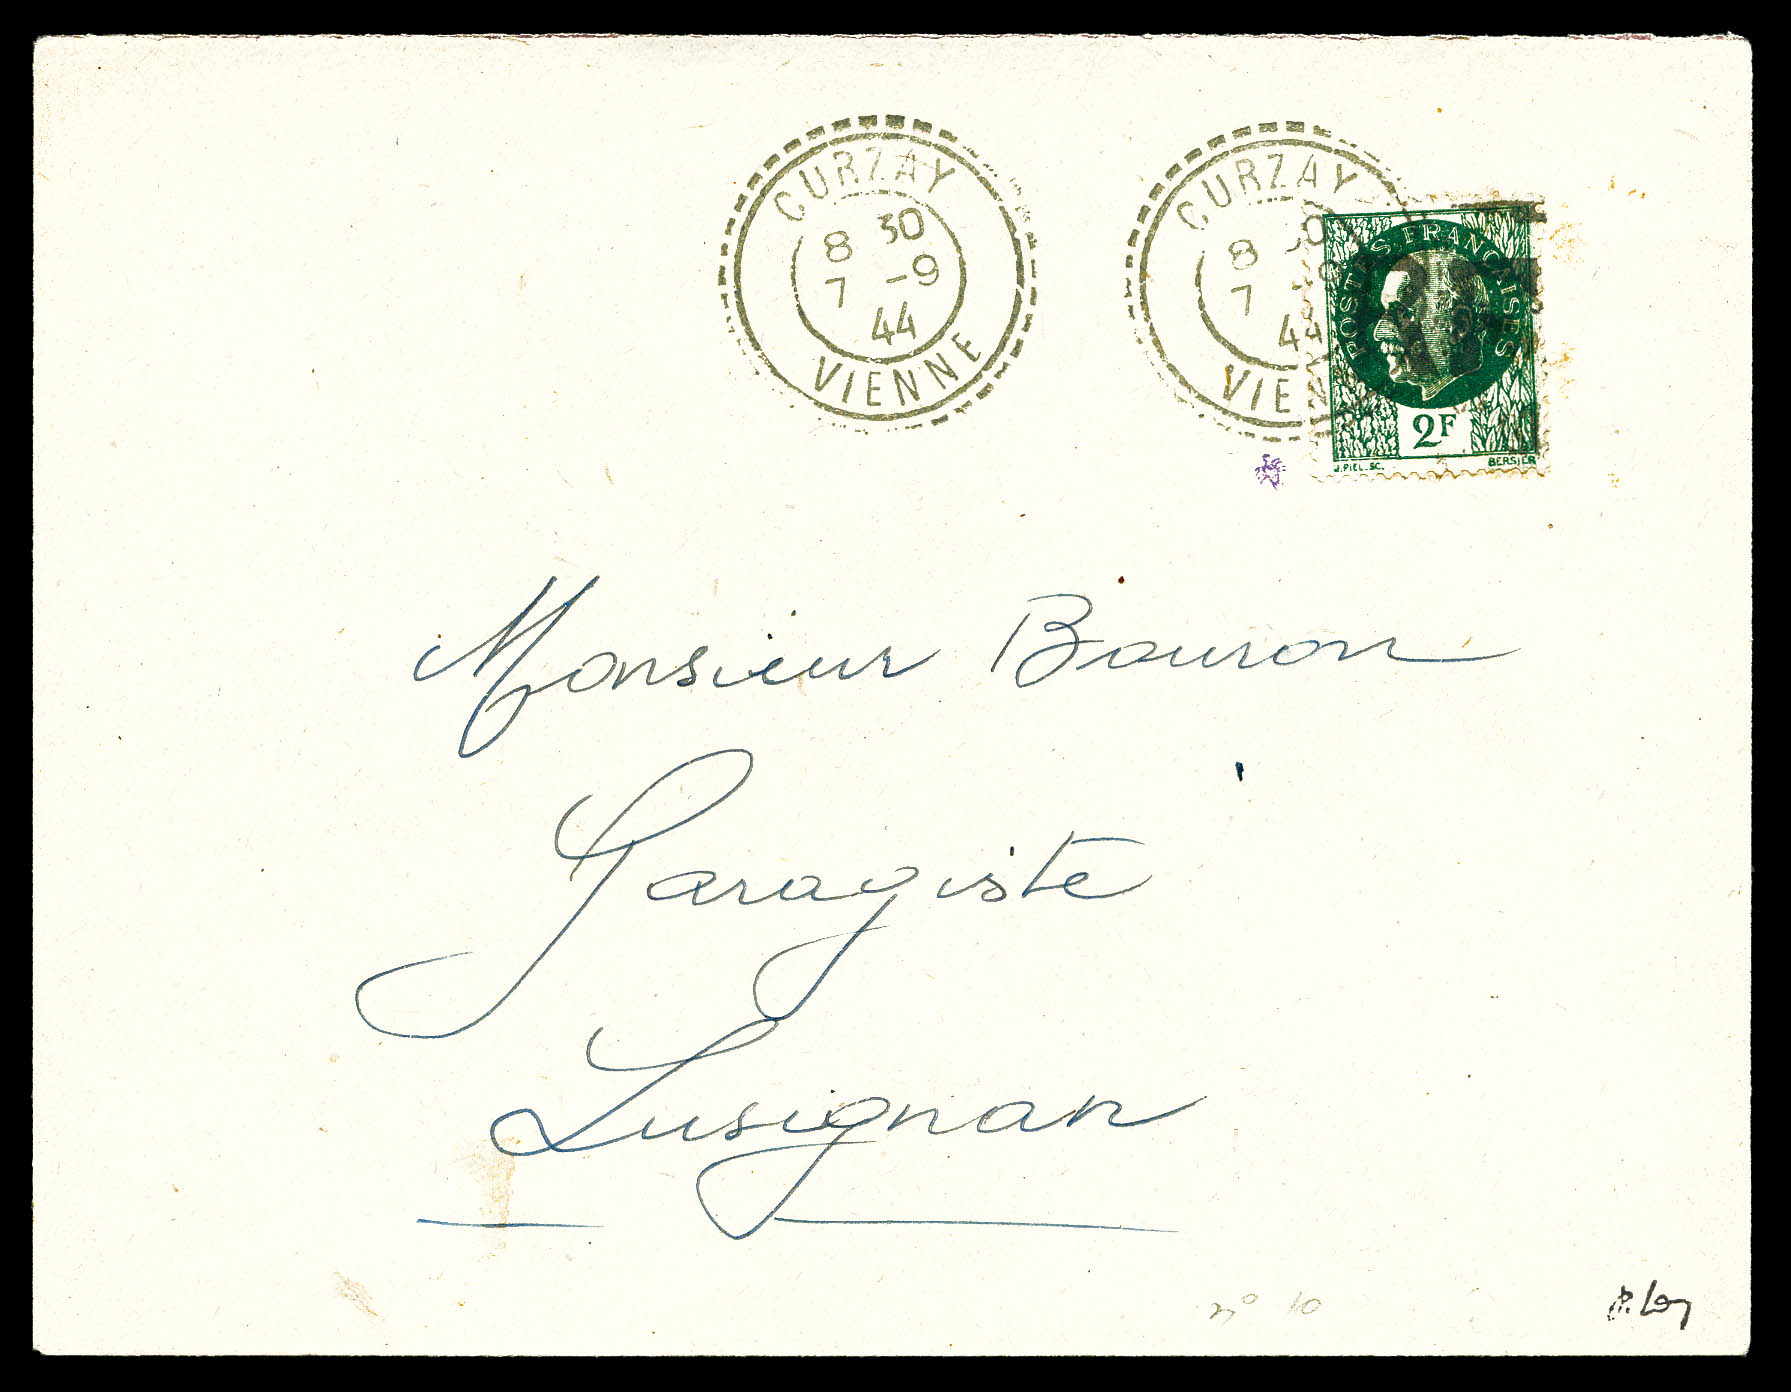 CURZAY
8 30
7 -9
44
VIENNE
CURZAY
8 30
7 -9
44
VIEN
POSTES FRANÇAISES
2F
J.PIEL.SC. BERSIER
Monsieur Bouron
Garagiste
Lusignan
n° 10